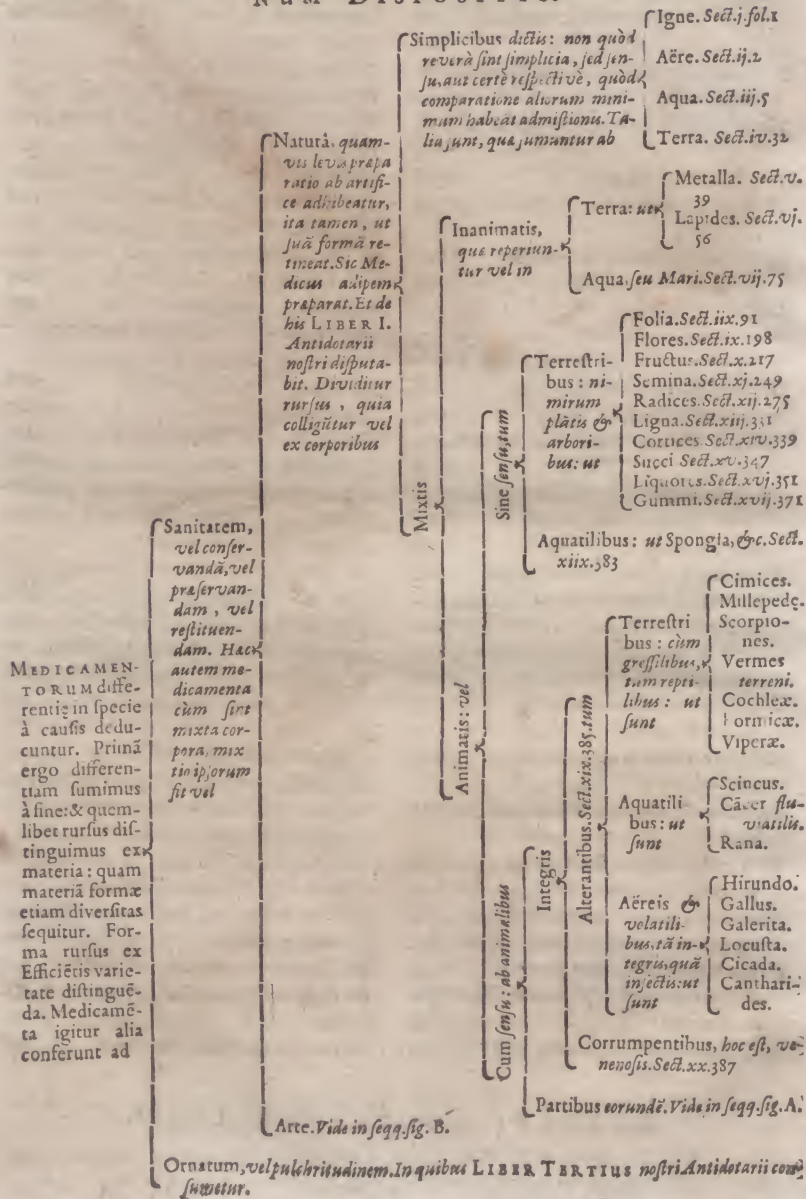 NUM DISPOSITIO.
MEDICAMEN-
TORUM diffe-
rentię in specie
à causis dedu-
cuntur. Primā
ergo differen-
tiam sumimus
à fine: & quem-
libet rursus dis-
tinguimus ex
materia: quam
materiā formæ
etiam diversitas
sequitur. For-
ma rursus ex
Efficiētis varie-
tate distinguē-
da. Medicamē-
ta igitur alia
conferunt ad
Sanitatem,
vel conser-
vandā, vel
præservan-
dam, vel
restituen-
dam. Hæc
autem me-
dicamenta
cùm sint
mixta cor-
pora, mix
tio ipsorum
fit vel
Naturâ, quam-
vis levis præpa
ratio ab artifi-
ce adhibeatur,
ita tamen, ut
suā formā re-
tineat. Sic Me-
dicus adipem
præparat. Et de
his LIBER I.
Antidotarii
nostri disputa-
bit. Dividitur
rursus, quia
colligūtur vel
ex corporibus
Simplicibus dictis: non quòd
reverà sint simplicia, sed sen-
su, aut certè respectivè, quòd
comparatione aliorum mini-
mum habeāt admistionis. Ta-
lia sunt, quæ sumuntur ab
Igne. Sect. j. fol. 1
Aëre. Sect. ij. 2
Aqua. Sect. iij. 5
Terra. Sect. iv. 32
Mixtis
Inanimatis,
quæ reperiun-
tur vel in
Terra: ut
Metalla. Sect. v.
39
Lapides. Sect. vj.
56
Aqua, seu Mari. Sect. vij. 75
Animatis: vel
Sine sensu, tum
Terrestri-
bus: ni-
mirum
plātis &
arbori-
bus: ut
Folia. Sect. iix. 91
Flores. Sect. ix. 198
Fructus. Sect. x. 217
Semina. Sect. xj. 249
Radices. Sect. xij. 275
Ligna. Sect. xiij. 331
Cortices. Sect. xiv. 339
Succi Sect. xv. 347
Liquores. Sect. xvj. 351
Gummi. Sect. xvij. 371
Aquatilibus: ut Spongia, &c. Sect.
xiix. 383
Cum sensu: ab animalibus
Integris
Alterantibus. Sect. xix. 385. tum
Terrestri
bus: cùm
gressilibus,
tum repti-
libus: ut
sunt
Cimices.
Millepedę.
Scorpio-
nes.
Vermes
terreni.
Cochleæ.
Formicæ.
Viperæ.
Aquatili-
bus: ut
sunt
Scincus.
Cācer flu-
viatilis.
Rana.
Aëreis &
volatili-
bus, tā in-
tegris, quā
injectis: ut
sunt
Hirundo.
Gallus.
Galerita.
Locusta.
Cicada.
Canthari-
des.
Corrumpentibus, hoc est, ve-
nenosis. Sect. xx. 387
Partibus eorundē. Vide in seqq. fig. A.
Arte. Vide in seqq. fig. B.
Ornatum, vel pulchritudinem. In quibus LIBER TERTIUS nostri Antidotarii con-
sumetur.